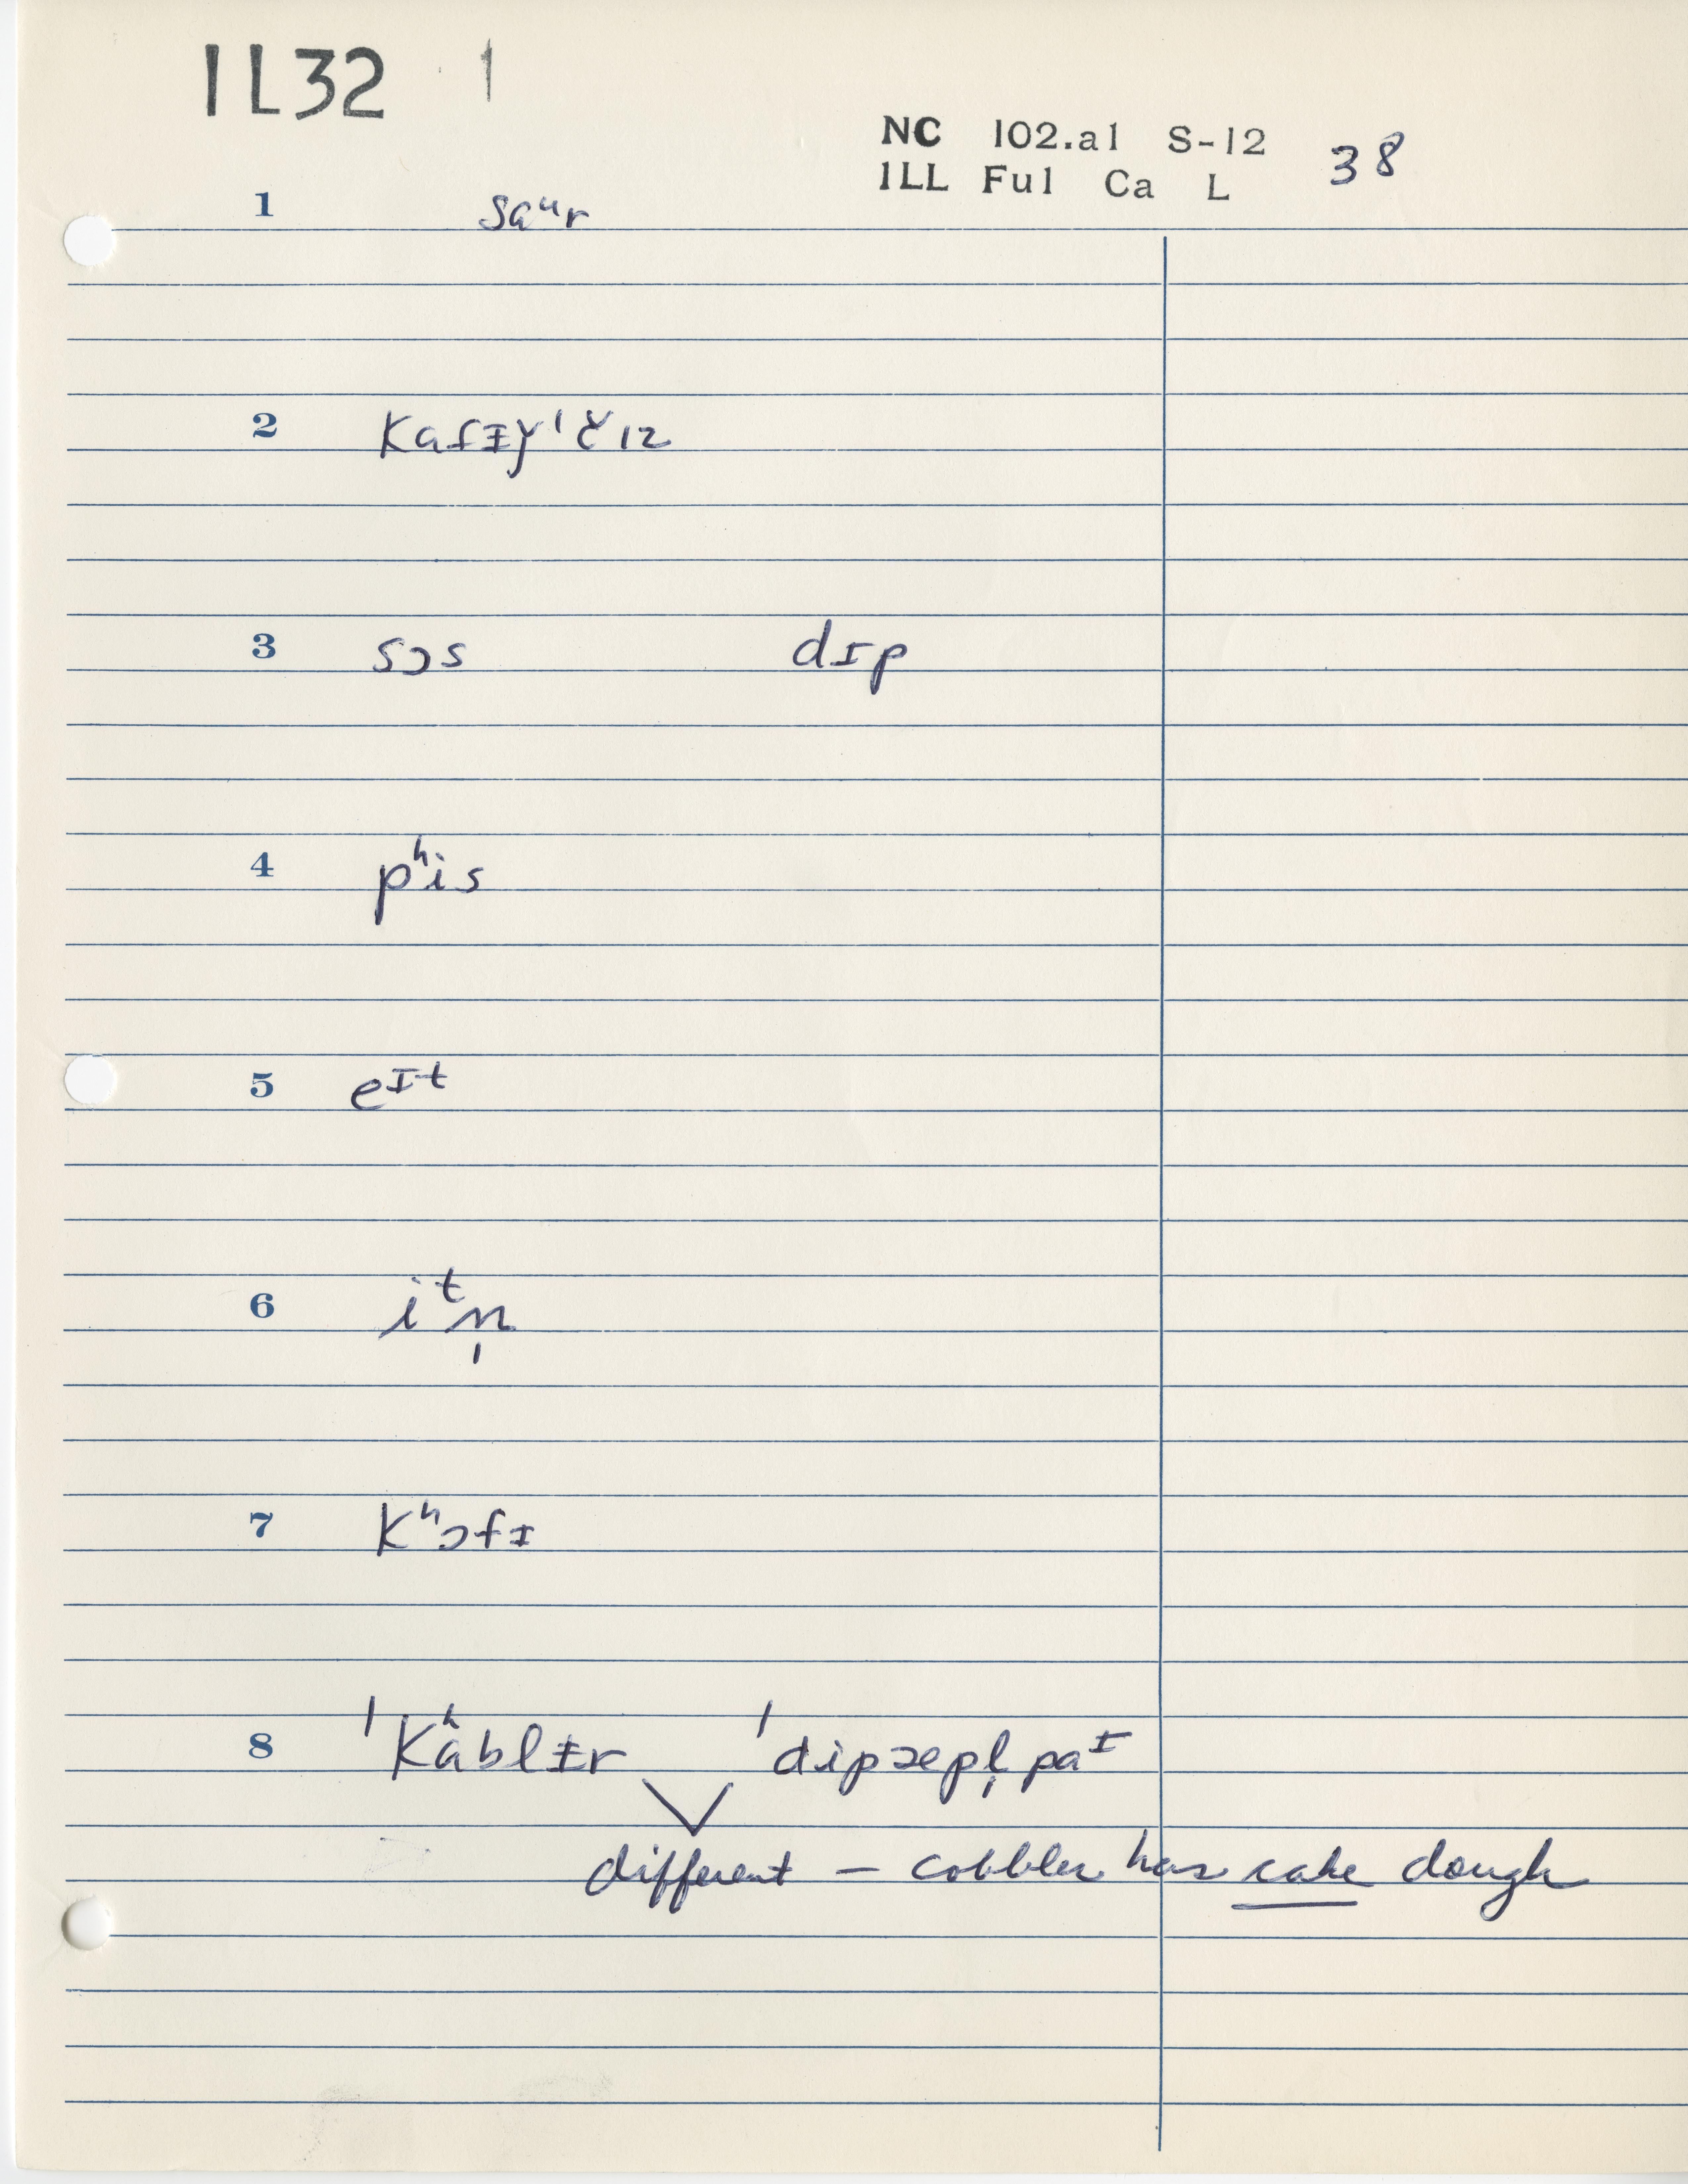 IL32 1
NC 102.a1 S-12 38
ILL Ful Ca L
1 saᵘr
2 kafɪyˈčiz
3 sɔs dɪp
4 pʰis
5 eᴵt
6 iᵗn̩
7 kʰɔfɪ
8 ˈkʰablɨr ˈdipæpl̩ paᴵ
different – cobbler has cake dough